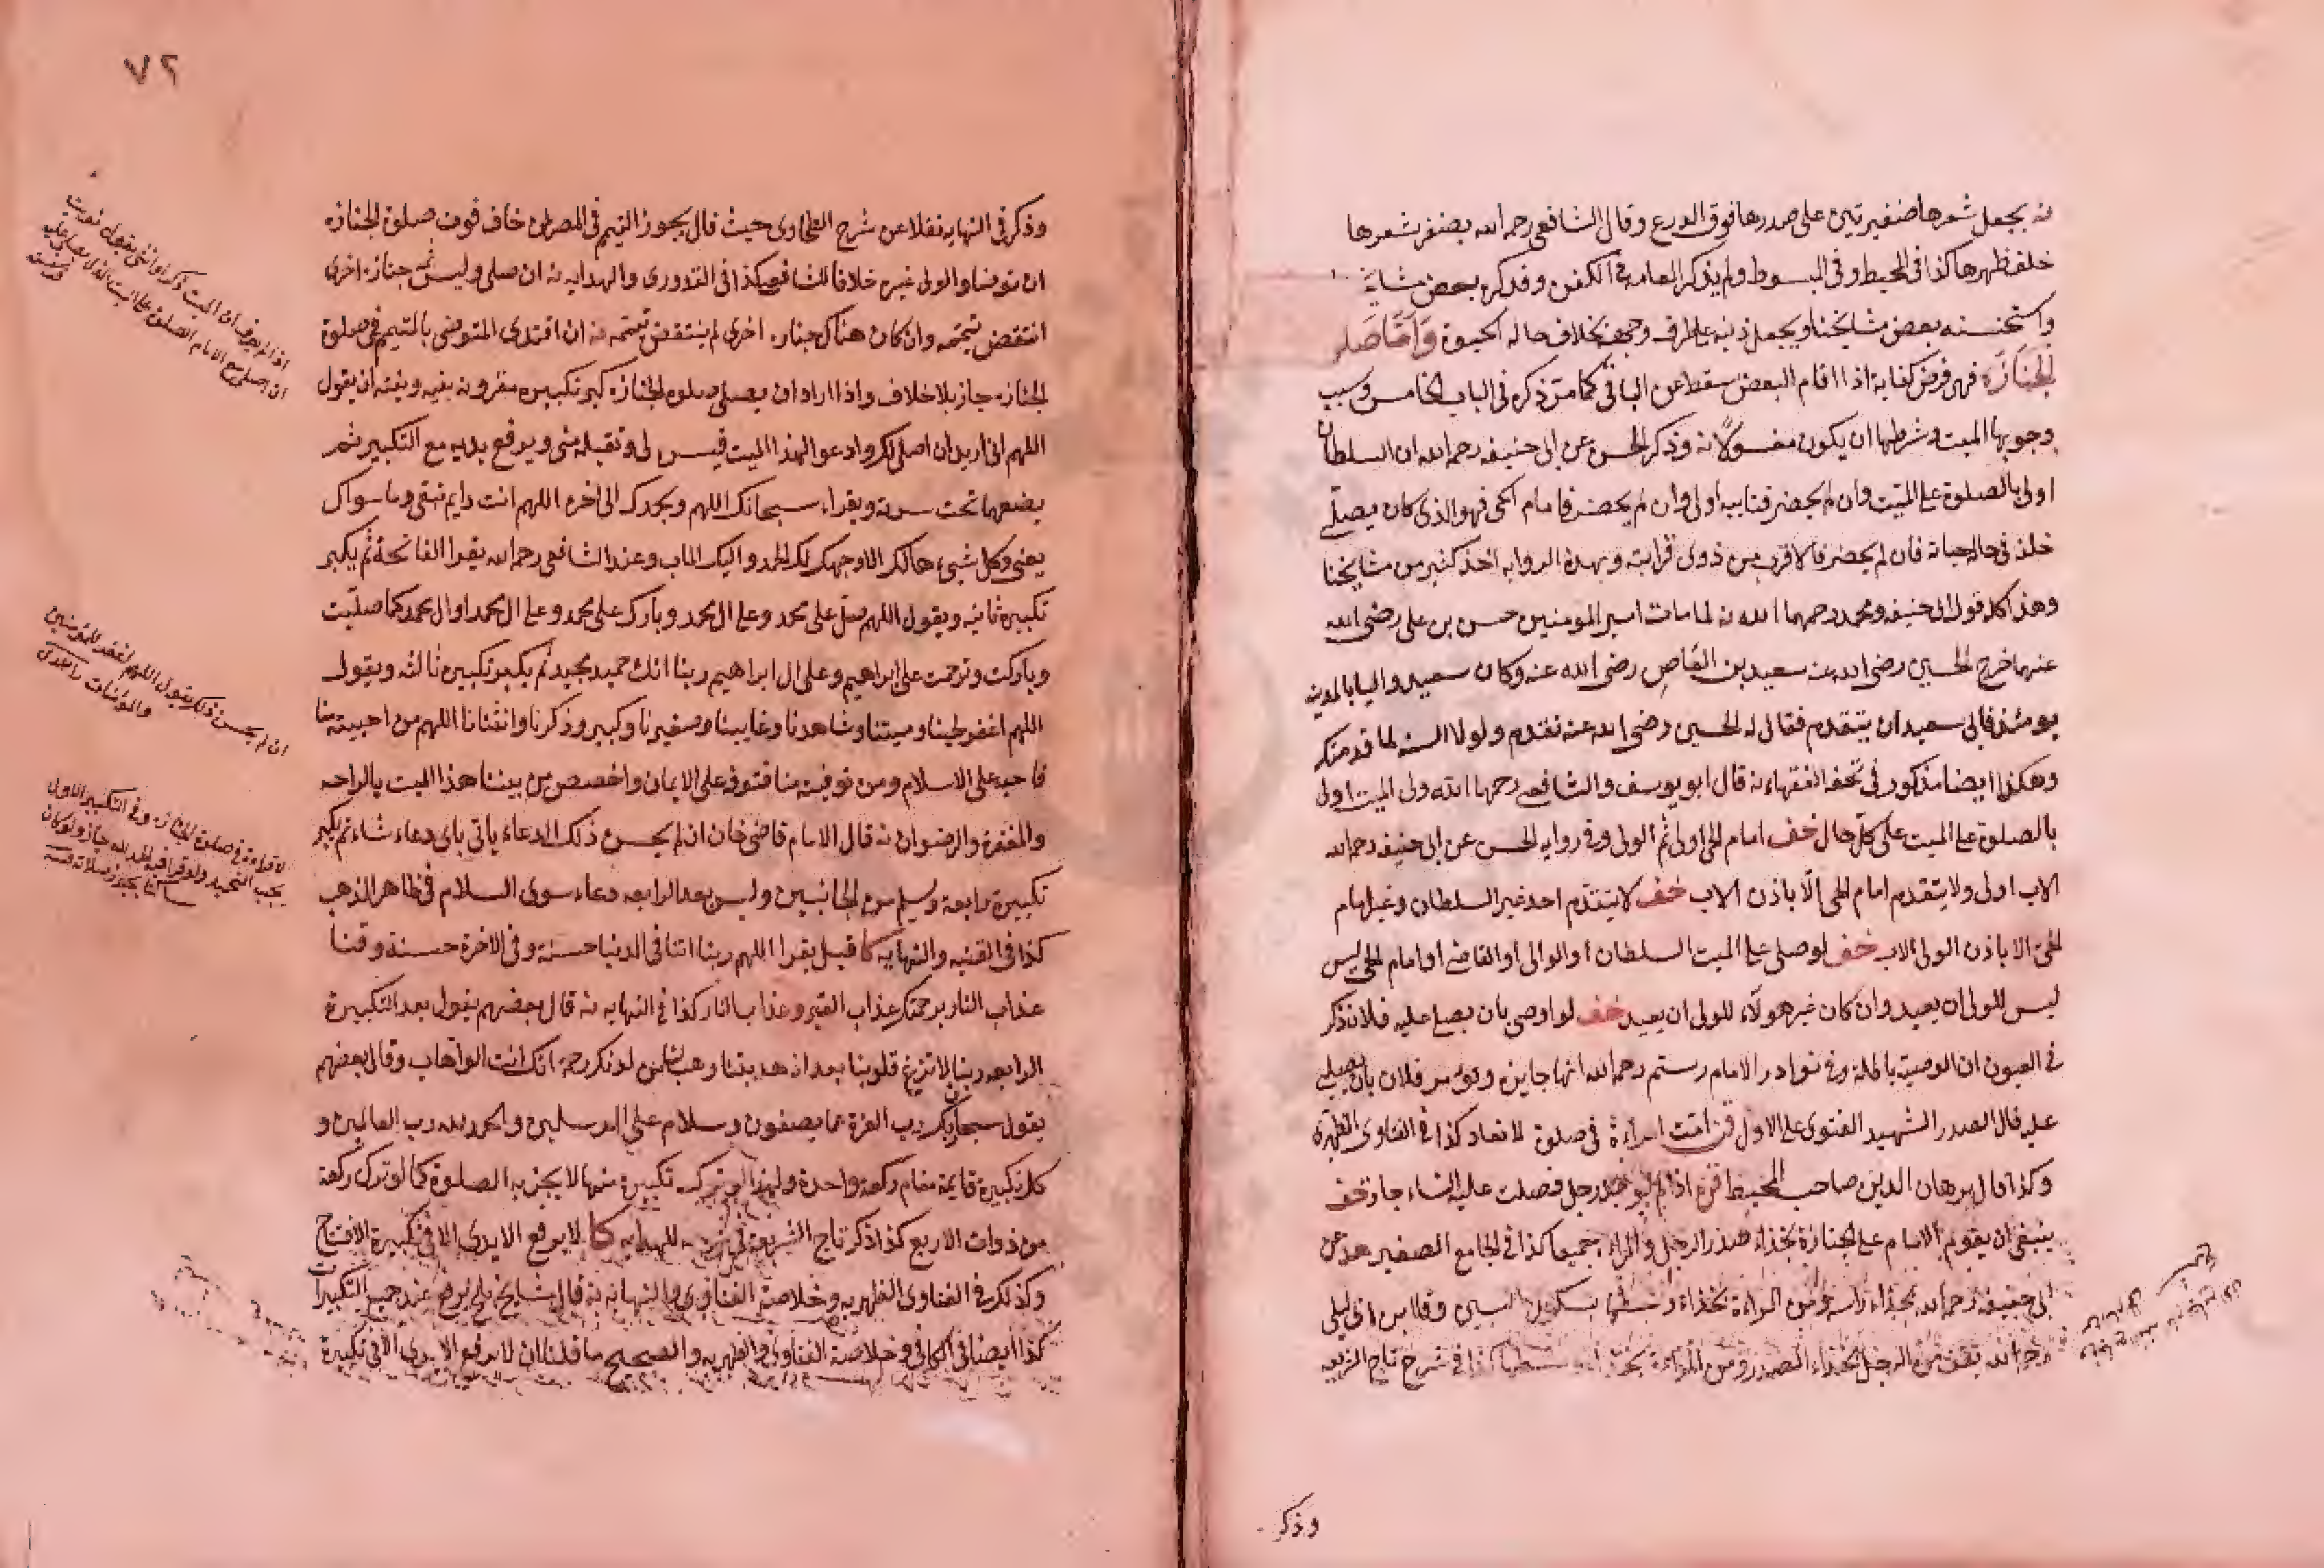 نه يجعل شعرها ضفيرتين على صدرها فوق الدرع وقال الشافعى رحمه الله يضفر شعرها
خلف ظهرها كذا فى المحيط وفى المبسوط ولم يذكر العمامه فى الكفن وقد كره بعض مشا
واستحسنه بعض مشايخنا ويجعل ذنبه على طرف وجهه بخلاف حاله الحيوة وَاَمَّا صَلو
الجَنَازَة فهى فرض كفاية اذا اقام البعض سقط عن الباقى كما مر ذكره فى الباب الخامس وسبب
وجوبها الميت وشرطها ان يكون مغسولاً نه وذكر الحسن عن ابى حنيفه رحمه الله ان السلطان
اولى بالصلوة على الميت وان لم يحضر فنايبه اولى وان لم يحضر فامام الحى فهو الذى كان يصلّى
خلفه فى حال حياته فان لم يحضر فالاقرب من ذوى قرابته وبهذه الروايه اخذ كثير من مشايخنا
وهذا كله قول ابى حنيفه ومحمد رحمهما الله نه لما مات امير المومنين حسن بن على رضى الله
عنهما خرج الحسين رضى الله عنه سعيد بن العاص رضى الله عنه وكان سعيد واليا بالمدينه
يومئذ فابى سعيد ان يتقدم فقال له الحسين رضى الله عنه تقدم ولولا السنه لما قدمتك
وهكذا ايضا مذكور فى تحفه الفقهاء نه قال ابو يوسف والشافعى رحمهما الله ولى الميت اولى
بالصلوة على الميت على كل حال خف امام الحى اولى ثم الولى وفى روايه الحسن عن ابى حنيفه رحمه الله
الاب اولى ولا يتقدم امام الحى الّا باذن الاب خف لا يتقدم احد غير السلطان وغير امام
الحىّ الا باذن الولى الاب خف لو صلى على الميت السلطان او الوالى او القاضى او امام الحى ليس
ليس للولى ان يعيد وان كان غير هولآء للولى ان يعيد خف لو اوصى بان يصلى عليه فلان ذكر
فى العيون ان الوصية باطلة وفى نوادر الامام رستم رحمه الله انها جايزه ويومر فلان بان يصلى
عليه قال الصدر الشهيد الفتوى على الاول امت امراءة فى صلوة لا تعاد كذا فى الفتاوى الظهيريه
وكذا قال برهان الدين صاحب المحيط اذا لم يوجد رجل فصلت عليه النساء جاز خف
ينبغى ان يقوم الامام على الجنازة بحذاء صدر الرجل والمراه جميعا كذا فى الجامع الصغير عن
ابى حنيفه رحمه الله بحذاء راسه ومن المراءة بحذاء وسطها بسكون السين وقال ابن ابى ليلى
رحمه الله يقف من الرجل بحذاء الصدر ومن المراءة بحذاء وسطها كذا فى شرح تاج الشريعه
وذكر
٧٢
وذكر فى النهايه نقلا عن شرح الطحاوى حيث قال يجوز التيمم فى المصر لمن خاف فوت صلوة الجنازه
ان توضا والولى غيره خلافا للشافعى هكذا فى القدورى والهدايه نه ان صلى وليس ثمه جنازه اخرى
انتقض تيممه وان كان هناك جنازه اخرى لم ينتقض تيممه نه ان اقتدى المتوضى بالمتيمم فى صلوة
الجنازه جاز بلا خلاف واذا اراد ان يصلى صلوه الجنازه كبر تكبيره مقرونه بنيه ونيته ان يقول
اللهم انى اريد ان اصلى لك وادعو لهذا الميت فيسره لى وتقبله منى ويرفع يديه مع التكبير ثم
يضعهما تحت سرته ويقراء سبحانك اللهم وبحمدك الى اخره اللهم انت دايم تبقى وما سواك
يفنى وكل شىء هالك الا وجهك لك الحمد واليك الماب وعند الشافعى رحمه الله يقرا الفاتحة ثم يكبر
تكبيرة ثانيه ويقول اللهم صل على محمد وعلى ال محمد وبارك على محمد وعلى ال محمد كما صليت
وباركت وترحمت على ابراهيم وعلى ال ابراهيم ربنا انك حميد مجيد ثم يكبر تكبيره ثالثه ويقول
اللهم اغفر لحينا وميتنا وشاهدنا وغايبنا وصغيرنا وكبيرنا وذكرنا وانثانا اللهم من احييته منا
فاحيه على الاسلام ومن توفيته منا فتوفه على الايمان واخصص من بيننا هذا الميت بالراحه
والمغفرة والرضوان نه قال الامام قاضى خان ان لم يحسن ذلك الدعاء ياتى باى دعاء شاء ثم يكبر
تكبيرة رابعة ويسلم من الجانبين وليس بعد الرابعه دعاء سوى السلام فى ظاهر المذهب
كذا فى القنيه والنهايه كا قيل يقرا اللهم ربنا اتنا فى الدنيا حسنة وفى الاخرة حسنة وقنا
عذاب النار برحمتك عذاب القبر وعذاب النار كذا فى النهايه نه قال بعضهم يقول بعد التكبيرة
الرابعه ربنا لا تزغ قلوبنا بعد اذ هديتنا وهب لنا من لدنك رحمة انك انت الوهاب وقال بعضهم
يقول سبحان ربك رب العزة عما يصفون وسلام على المرسلين والحمد لله رب العالمين و
كل تكبيرة قايمة مقام ركعة واحدة ولهذا لو ترك تكبيرة منها لا يجزيه الصلوة كما لو ترك ركعة
من ذوات الاربع كذا ذكر تاج الشريعة فى شرحه للهدايه كا لا يرفع الايدى الا فى تكبيرة الافتتاح
وكذلك فى الفتاوى الظهيريه وخلاصة الفتاوى والنهايه نه قال مشايخ بلخ يرفع عند جميع التكبيرات
كذا ايضا فى الكافى وخلاصة الفتاوى والظهيريه والصحيح ما قلنا ان لا يرفع الايدى الا فى تكبيرة
اذا لم يعرف ان الميت ذكر او انثى يقول نويت
ان اصلى مع الامام الصلوة على الميت الذى يصلى عليه
ان لم يحسن ذلك يقول اللهم اغفر للمؤمنين
والمؤمنات
لا قراءة فى صلوة الجنازه وفى التكبير الاول